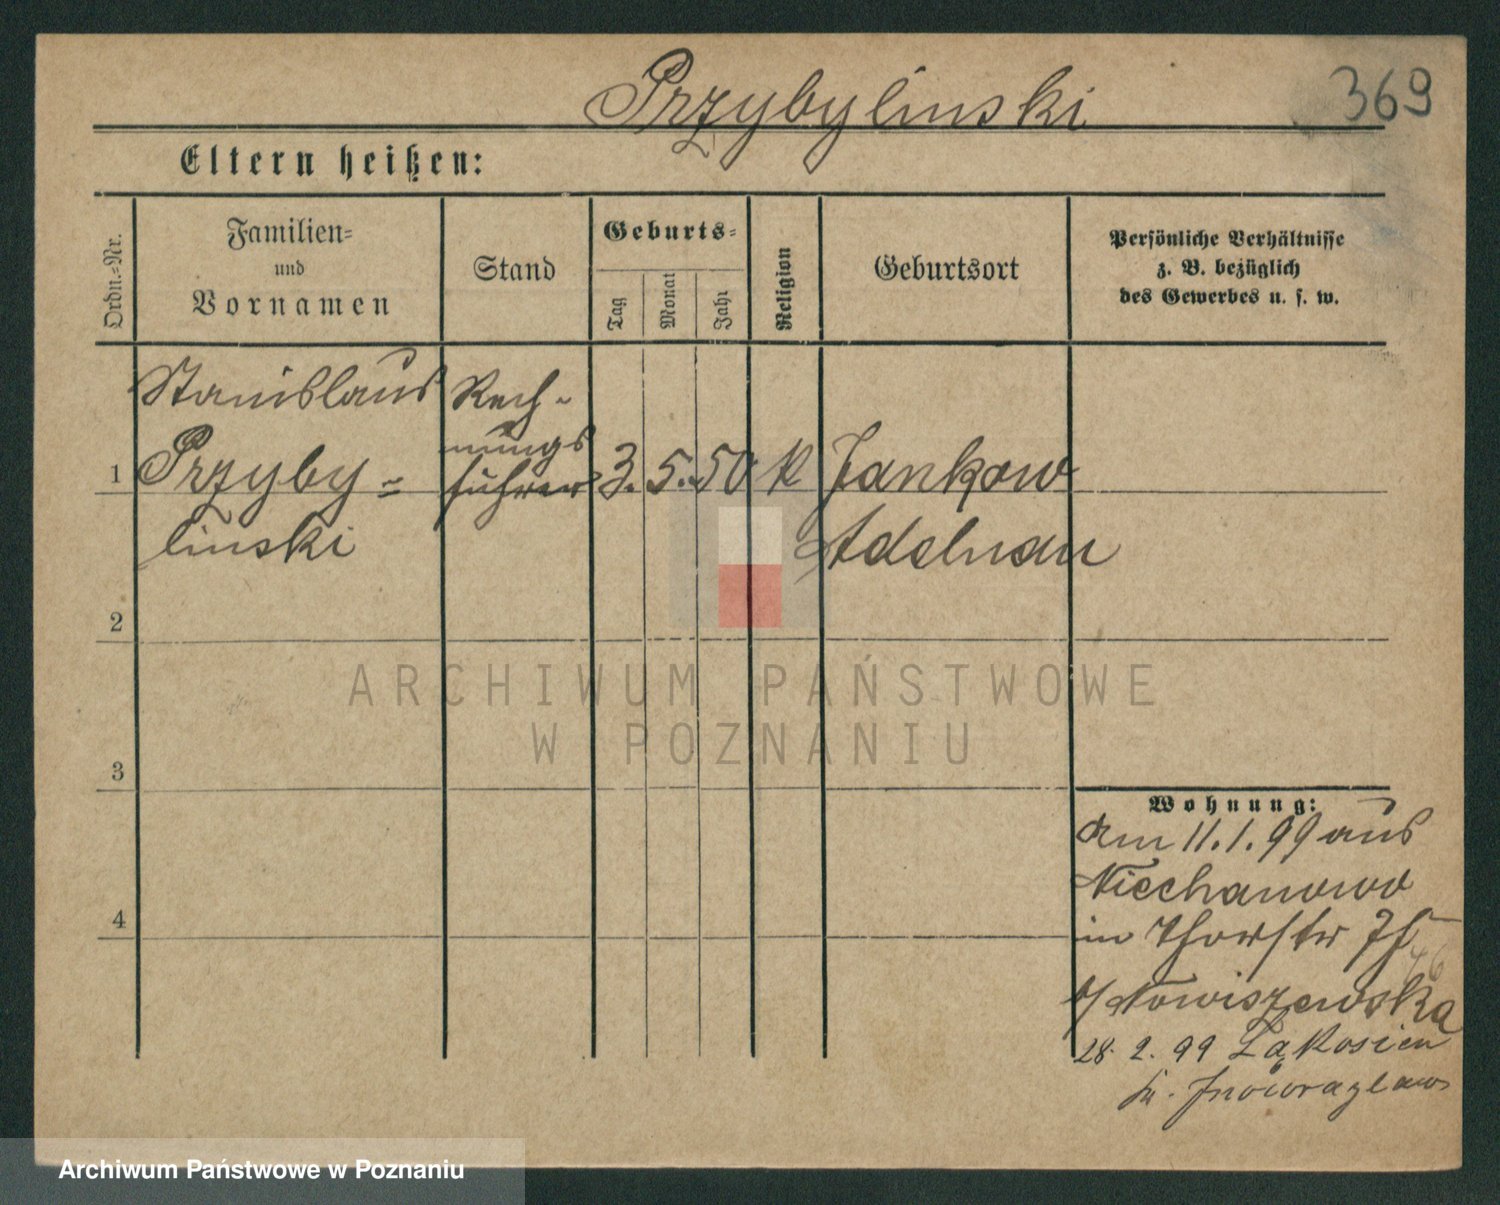 Przybylinski 369
Eltern heißen:
Ordn.=Nr.
Familien=
und
Vornamen
Stand
Geburts=
Tag
Monat
Jahr
Religion
Geburtsort
Persönliche Verhältnisse
z. B. bezüglich
des Gewerbes u. s. w.
Stanislaus
Przyby=
linski
Rech-
nungs
führer
1
3. 5. 50 k
Jankow
Adelnau
2
3
4
Wohnung:
Am 11.1.99 aus
Niechanowo
in Thorstr
b/Nowiszewska
28. 2. 99
Kr. Inowrazlaw
ARCHIWUM PAŃSTWOWE
W POZNANIU
Archiwum Państwowe w Poznaniu